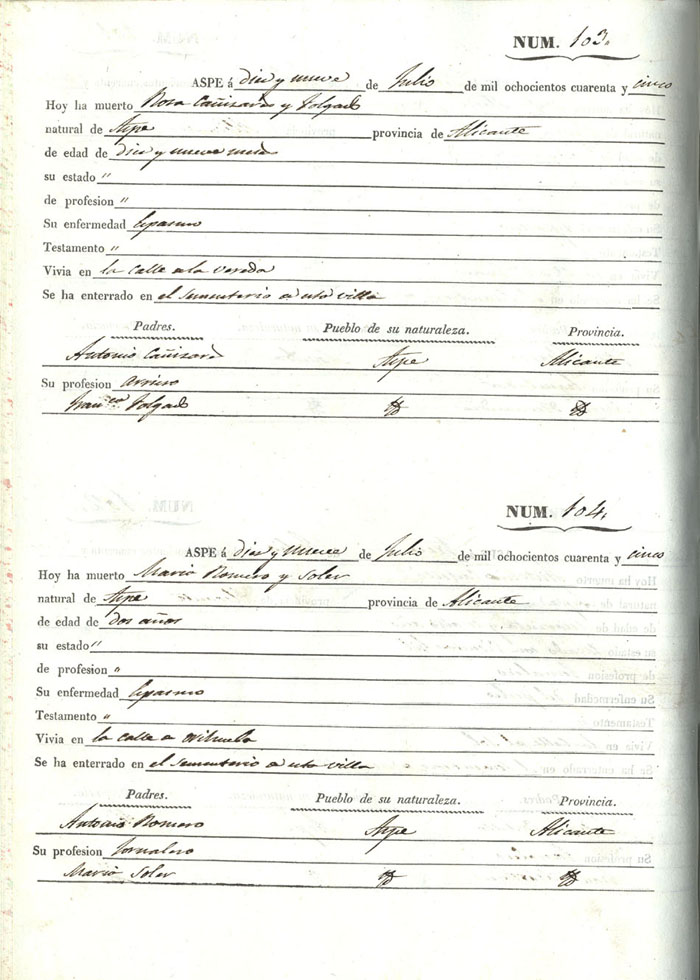 NUM. 103.
ASPE á diez y nueve de Julio de mil ochocientos cuarenta y cinco
Hoy ha muerto Rosa Cañizares y Folgado
natural de Aspe provincia de Alicante
de edad de diez y nueve meses
su estado "
de profesion "
Su enfermedad Espasmo
Testamento "
Vivia en la calle de la vereda
Se ha enterrado en el Sementerio de esta villa
Padres. Pueblo de su naturaleza. Provincia.
Antonio Cañizares Aspe Alicante
Su profesion Arriero
Fran.ca Folgado
NUM. 104.
ASPE á diez y nueve de Julio de mil ochocientos cuarenta y cinco
Hoy ha muerto Maria Romero y Soler
natural de Aspe provincia de Alicante
de edad de dos años
su estado "
de profesion "
Su enfermedad Espasmo
Testamento "
Vivia en la calle de Orihuela
Se ha enterrado en el Sementerio de esta villa
Padres. Pueblo de su naturaleza. Provincia.
Antonio Romero Aspe Alicante
Su profesion Jornalero
Maria Soler